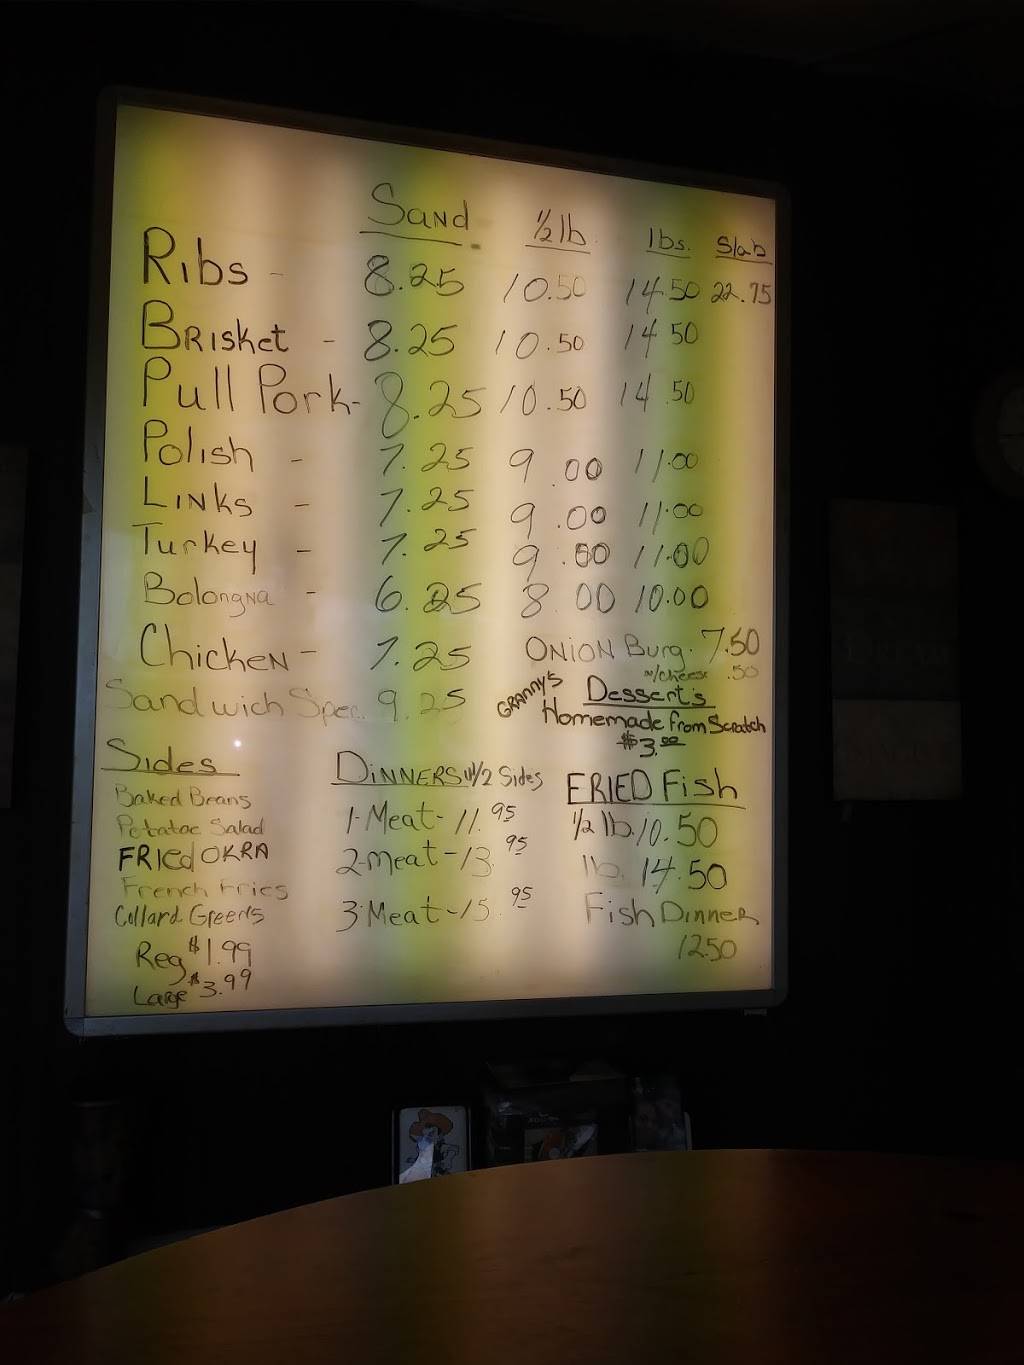 Sand ½ lb. lbs. Slab
Ribs - 8.25 10.50 14.50 22.75
Brisket - 8.25 10.50 14.50
Pull Pork - 8.25 10.50 14.50
Polish - 7.25 9.00 11.00
Links - 7.25 9.00 11.00
Turkey - 7.25 9.00 11.00
Bolongna - 6.25 8.00 10.00
Chicken - 7.25
Sandwich Spec. 9.25
Onion Burg. 7.50
w/cheese .50
Granny's
Dessert's
Homemade from Scratch
$3.00
Sides
Baked Beans
Potatoe Salad
FRIED OKRA
French Fries
Collard Greens
Reg $1.99
Large $3.99
Dinners w/2 Sides
1-Meat - 11.95
2-Meat - 13.95
3-Meat - 15.95
FRIED Fish
½ lb. 10.50
lb. 14.50
Fish Dinner
12.50